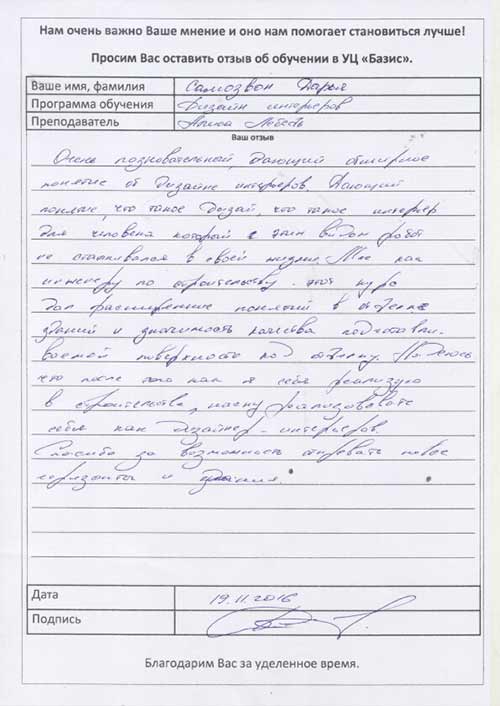 Нам очень важно Ваше мнение и оно нам помогает становиться лучше!
Просим Вас оставить отзыв об обучении в УЦ «Базис».
Ваше имя, фамилия Самозвон Дарья
Программа обучения Дизайн интерьеров
Преподаватель Алиса Лебедь
Ваш отзыв
Очень познавательный, дающий обширное
понятие от дизайне интерьеров. Дающий
понятие, что такое дизай, что такое интерьер
для человека который с этим видом работ
не сталкивался в своей жизни. Мне как
инженеру по строительству этот курс
дал расширение понятий в отделке
зданий и значимость качества подготавли.
ваемой поверхности под отделку. Надеюсь
что после того как я себя реализую
в строительстве, начну реализовывать
себя как дизайнер-интерьеров
Спасибо за возможность открывать новые
горизонты и знания.
Дата 19.11.2016
Подпись
Благодарим Вас за уделенное время.